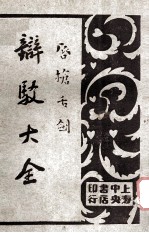 唇槍舌劍
辯駁大全
上海
中央
書店
印行